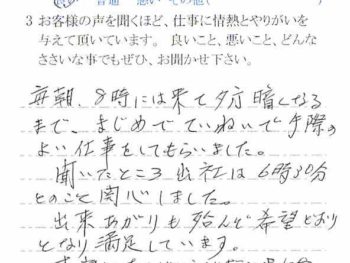 普通　悪い　その他
3 お客様の声を聞くほど、仕事に情熱とやりがいを
与えて頂いています。 良いこと、悪いこと、どんな
ささいな事でもぜひ、お聞かせ下さい。
毎朝、8時には来て夕方暗くなる
まで、まじめで ていねいで手際の
よい仕事をしてもらいました。
聞いたところ 出社は 6時30分
とのこと 関心しました。
出来あがりも 殆んど希望どおり
となり満足しています。